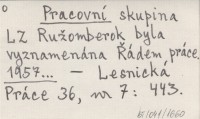 o
Pracovní skupina
LZ Ružomberok byla
vyznamenána Řádem práce.
1957... – Lesnická
Práce 36, no 7: 443.